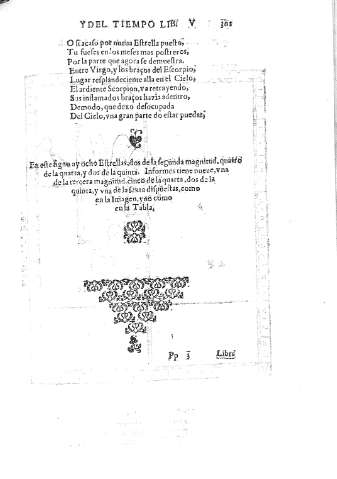 Y DEL TIEMPO LIB V. 301
O si acaso por nueua Estrella puesto,
Tu fueses en los meses mas postreros,
Por la parte que agora se demuestra.
Entre Virgo, y los braços del Escorpio,
Lugar resplandeciente alla en el Cielo,
El ardiente Scorpion, va retrayendo,
Sus inflamados braços hazia adentro,
De modo, que dexo desocupada
Del Cielo, vna gran parte do estar puedas,
En este signo ay ocho Estrellas, dos de la segunda magnitud, quatro
de la quarta, y dos de la quinta. Informes tiene nueue, vna
de la tercera magnitud, cinco de la quarta, dos de la
quinta, y vna de la sexta dispuestas, como
en la Imagen, y no como
en la Tabla,
Pp 3 Libri